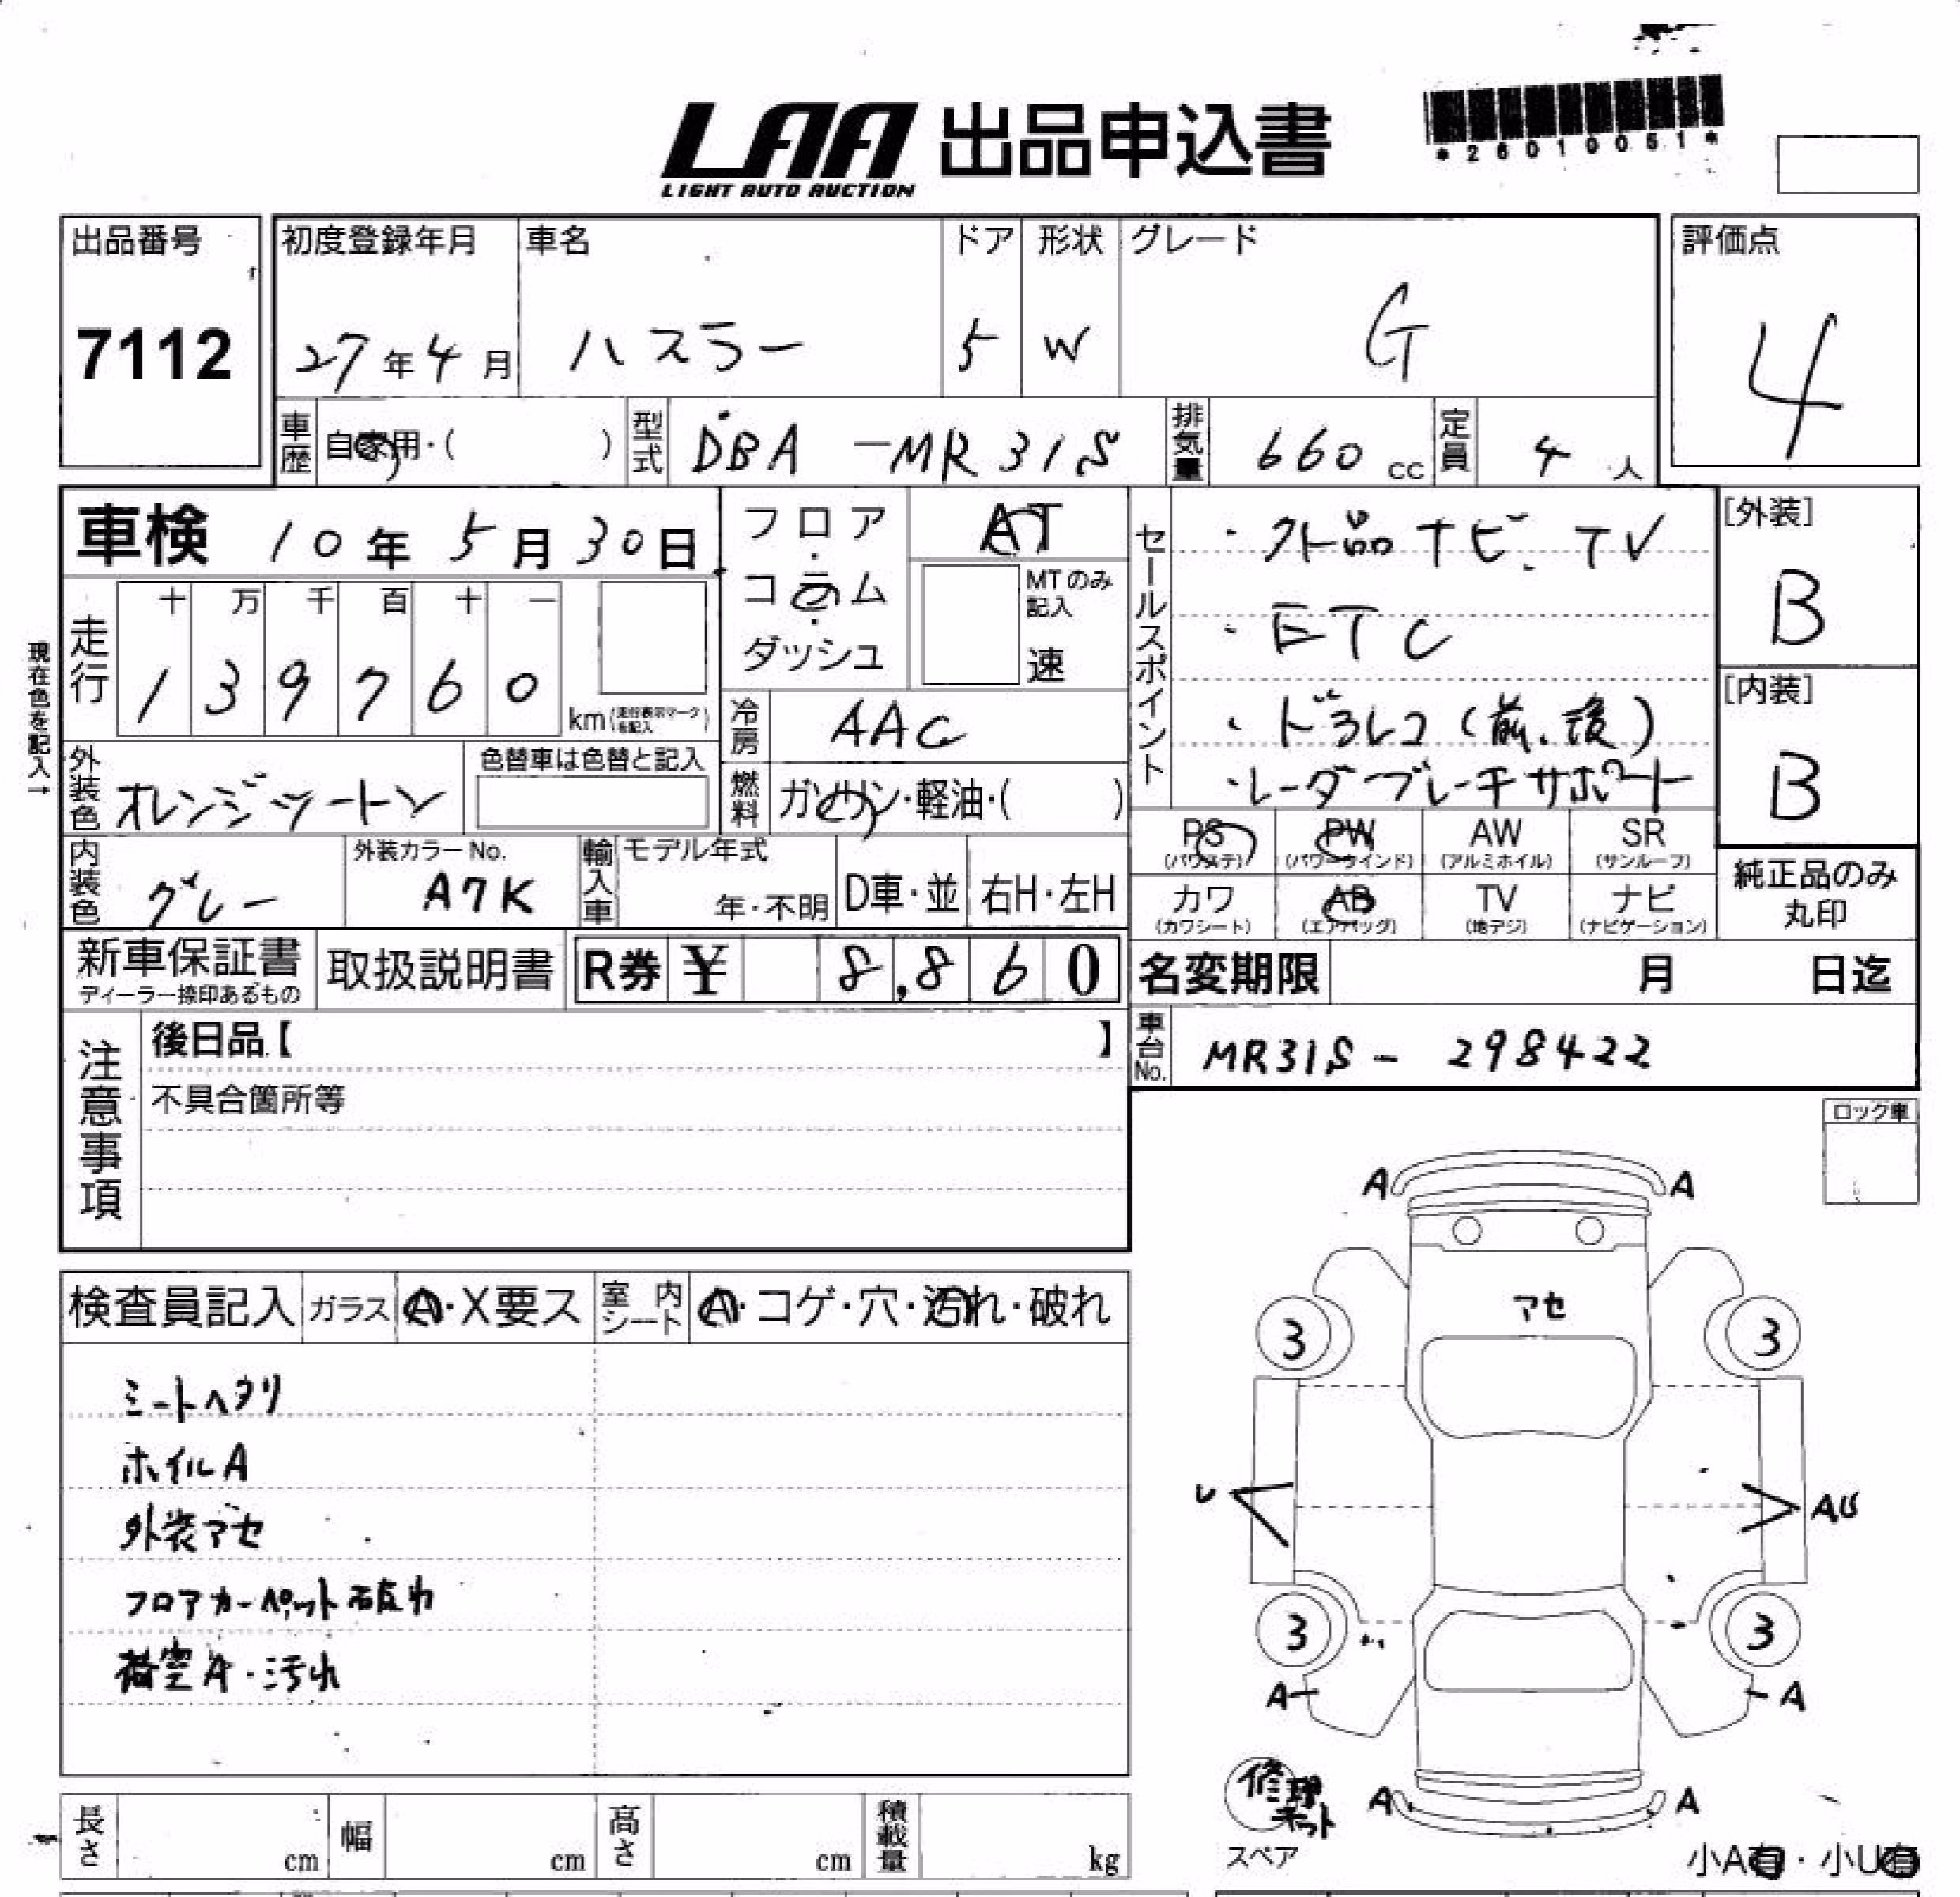 LAA 出品申込書
LIGHT AUTO AUCTION
*26010051*
出品番号
7112
初度登録年月
27年4月
車名
ハスラー
ドア
5
形状
W
グレード
G
評価点
4
車歴
自家用・( )
型式
DBA -MR31S
排気量
660 cc
定員
4人
車検 10年5月30日
現在色を記入→
走行
十 万 千 百 十 一
1 3 9 7 6 0
km(走行表示マークを記入)
フロア・コラム・ダッシュ
AT
MTのみ記入
速
冷房
AAC
燃料
ガソリン・軽油・( )
外装色
オレンジツートン
色替車は色替と記入
内装色
グレー
外装カラーNo.
A7K
輸入車
モデル年式
年・不明
D車・並
右H・左H
セールスポイント
・外品ナビ.TV
・ETC
・ドラレコ(前.後)
・レーダブレーキサポート
[外装]
B
[内装]
B
PS
(パワステ)
PW
(パワーウインド)
AW
(アルミホイル)
SR
(サンルーフ)
カワ
(カワシート)
AB
(エアバッグ)
TV
(地デジ)
ナビ
(ナビゲーション)
純正品のみ
丸印
新車保証書
ディーラー捺印あるもの
取扱説明書
R券 ¥ 8,860
名変期限 月 日迄
車台No.
MR31S - 298422
注意事項
後日品【 】
不具合箇所等
ロック車
検査員記入
ガラス
A・X要ス
室内シート
A・コゲ・穴・汚れ・破れ
シートヘタリ
ホイルA
外装アセ
フロアカーペット
荷室A・汚れ
A A
アセ
3 3
U AU
3 3
A A
A A
修理キット
スペア
小A有・小U有
長さ cm
幅 cm
高さ cm
積載量 kg